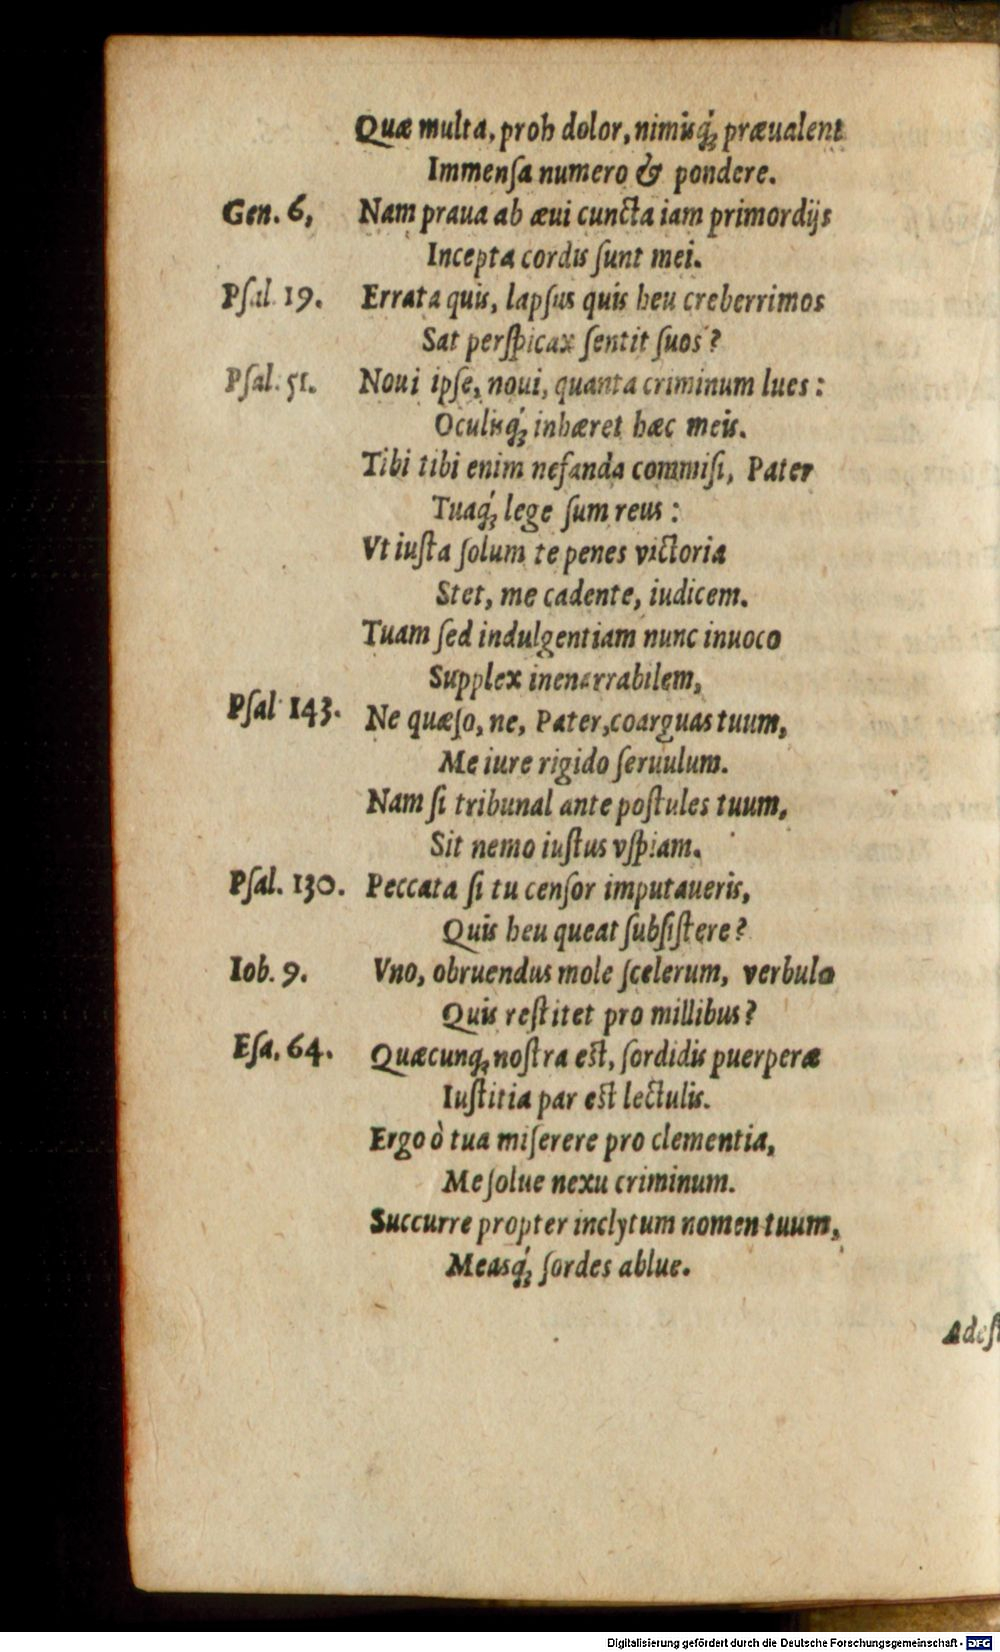 Quæ multa, proh dolor, nimisq́ꝫ præualent
Immenſa numero & pondere.
Gen. 6, Nam praua ab æui cuncta iam primordijs
Incepta cordis ſunt mei.
Pſal. 19. Errata quis, lapſus quis heu creberrimos
Sat perſpicax ſentit ſuos?
Pſal. 51. Noui ipſe, noui, quanta criminum lues:
Oculisq́ꝫ inhæret hæc meis.
Tibi tibi enim nefanda commiſi, Pater
Tuaq́ꝫ lege ſum reus:
Vt iuſta ſolum te penes victoria
Stet, me cadente, iudicem.
Tuam ſed indulgentiam nunc inuoco
Supplex inenarrabilem,
Pſal 143. Ne quæſo, ne, Pater, coarguas tuum,
Me iure rigido ſeruulum.
Nam ſi tribunal ante poſtules tuum,
Sit nemo iuſtus vſpiam.
Pſal. 130. Peccata ſi tu cenſor imputaueris,
Quis heu queat ſubſiſtere?
Iob. 9. Vno, obruendus mole ſcelerum, verbulo
Quis reſtitet pro millibus?
Eſa. 64. Quæcunqꝫ noſtra eſt, ſordidis puerperæ
Iuſtitia par eſt lectulis.
Ergo ò tua miſerere pro clementia,
Me ſolue nexu criminum.
Succurre propter inclytum nomen tuum,
Measq́ꝫ ſordes ablue.
Adeſt
Digitalisierung gefördert durch die Deutsche Forschungsgemeinschaft - DFG